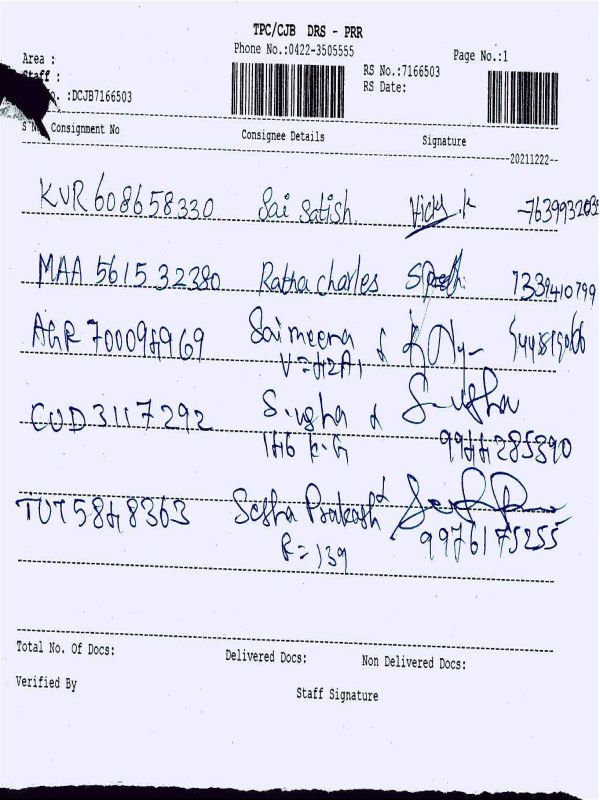 TPC/CJB DRS - PRR
Phone No.:0422-3505555
Page No.:1
Area :
Staff :
RS No.:7166503
RS Date:
No. :DCJB7166503
S No Consignment No Consignee Details Signature
20211222
KVR 608658330 Sai Satish Vicky k
MAA 561532380 Ratna charles 7339410799
AGR 700094969 Sai meera &
CUD 3117292 Sugha & Sugha
146 K.G 9944285390
TUT 5848363 Sesha Prakash &
R=139 9976175255
Total No. Of Docs: Delivered Docs: Non Delivered Docs:
Verified By Staff Signature